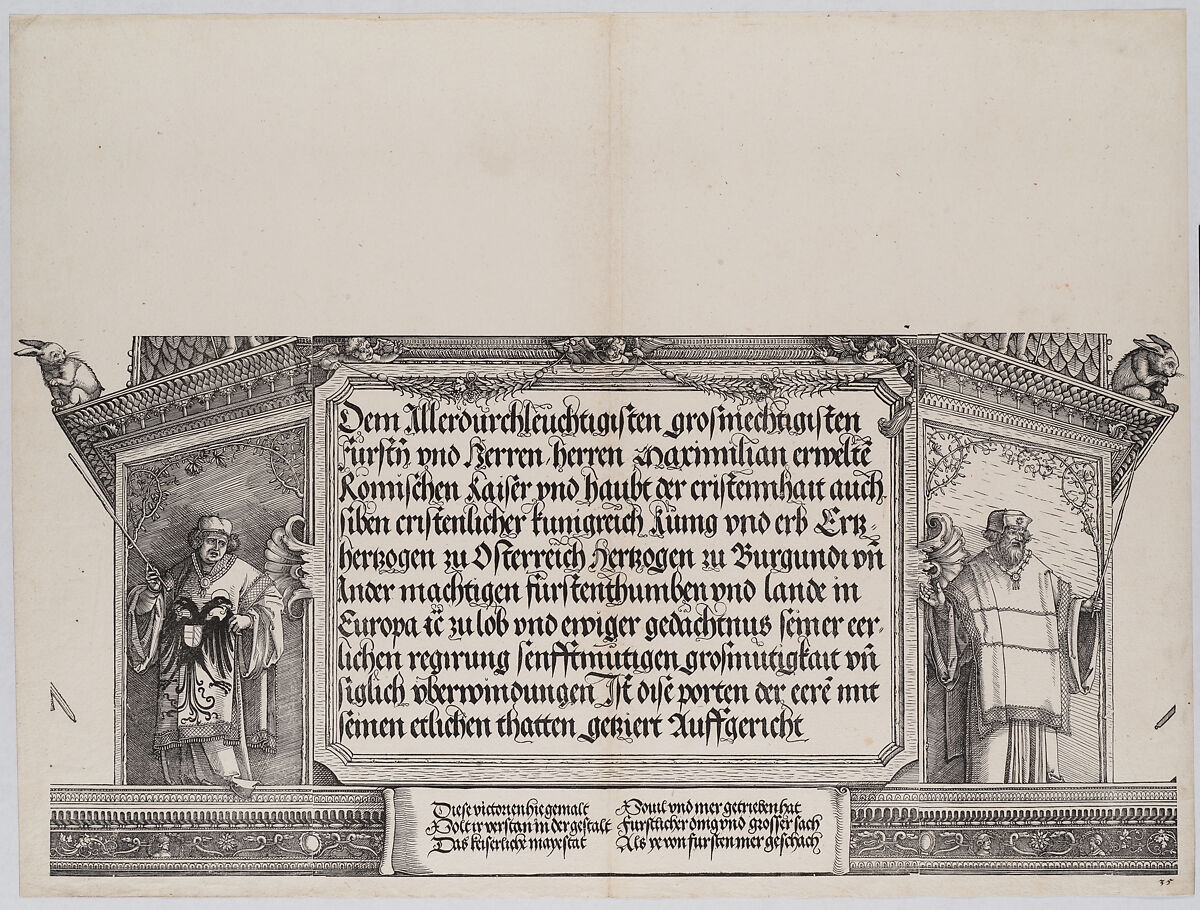 Dem Allerdurchleuchtigisten grosmechtigisten
fürstñ vnd Herren herren Maximilian erweltē
Romischen Kaiser vnd haubt der cristennhait auch
siben cristenlicher kunigreich Kunig vnd erb Ertz-
hertzogen zu Osterreich Hertzogen zu Burgundi vñ
Ander machtigen fürstenthumben vnd lande in
Europa ꝛc̄ zu lob vnd ewiger gedächtnus seiner eer-
lichen regirung senfftmütigen grosmütigkait vñ
siglich vberwindungen Ist dise porten der eerē mit
seinen etlichen thatten geziert Auffgericht
Diese victorien hie gemalt
Solt ir verstan in der gestalt
Das keiserliche mayestat
Souil vnd mer getrieben hat
Furstlicher ding vnd grosser sach
Als ye von fursten mer geschach
35